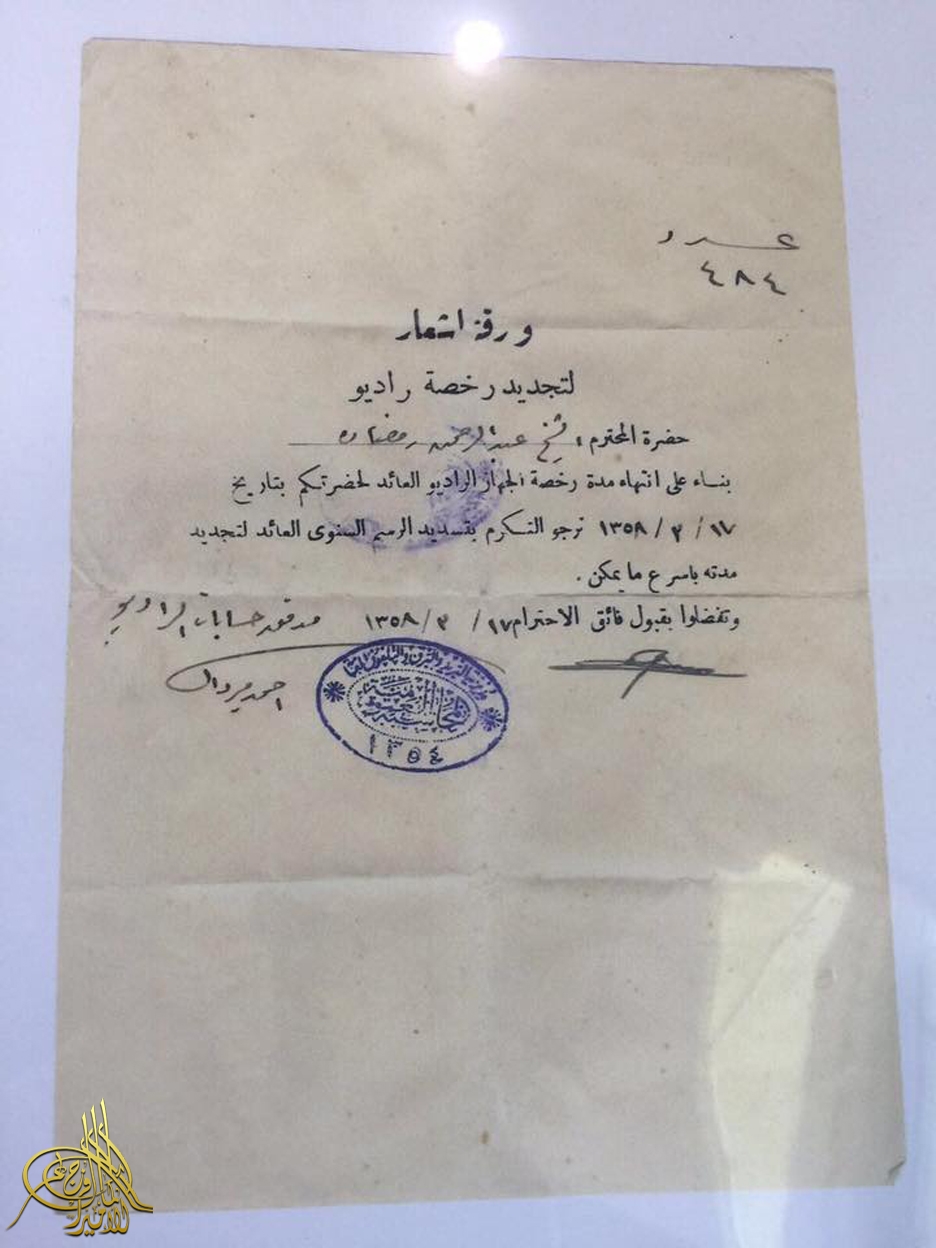 عدد
٤٨٤
ورقة اشعار
لتجديد رخصة راديو
حضرة المحترم : شيخ عبد الرحمن رمضان
بناء على انتهاء مدة رخصة الجهاز الراديو العائد لحضرتكم بتاريخ
١٧ / ٢ / ١٣٥٨ نرجو التكرم بتسديد الرسم السنوى العائد لتجديد
مدته باسرع ما يمكن .
وتفضلوا بقبول فائق الاحترام ١٧ / ٢ / ١٣٥٨ مدقق حسابات الراديو
احمد
١٣٥٤